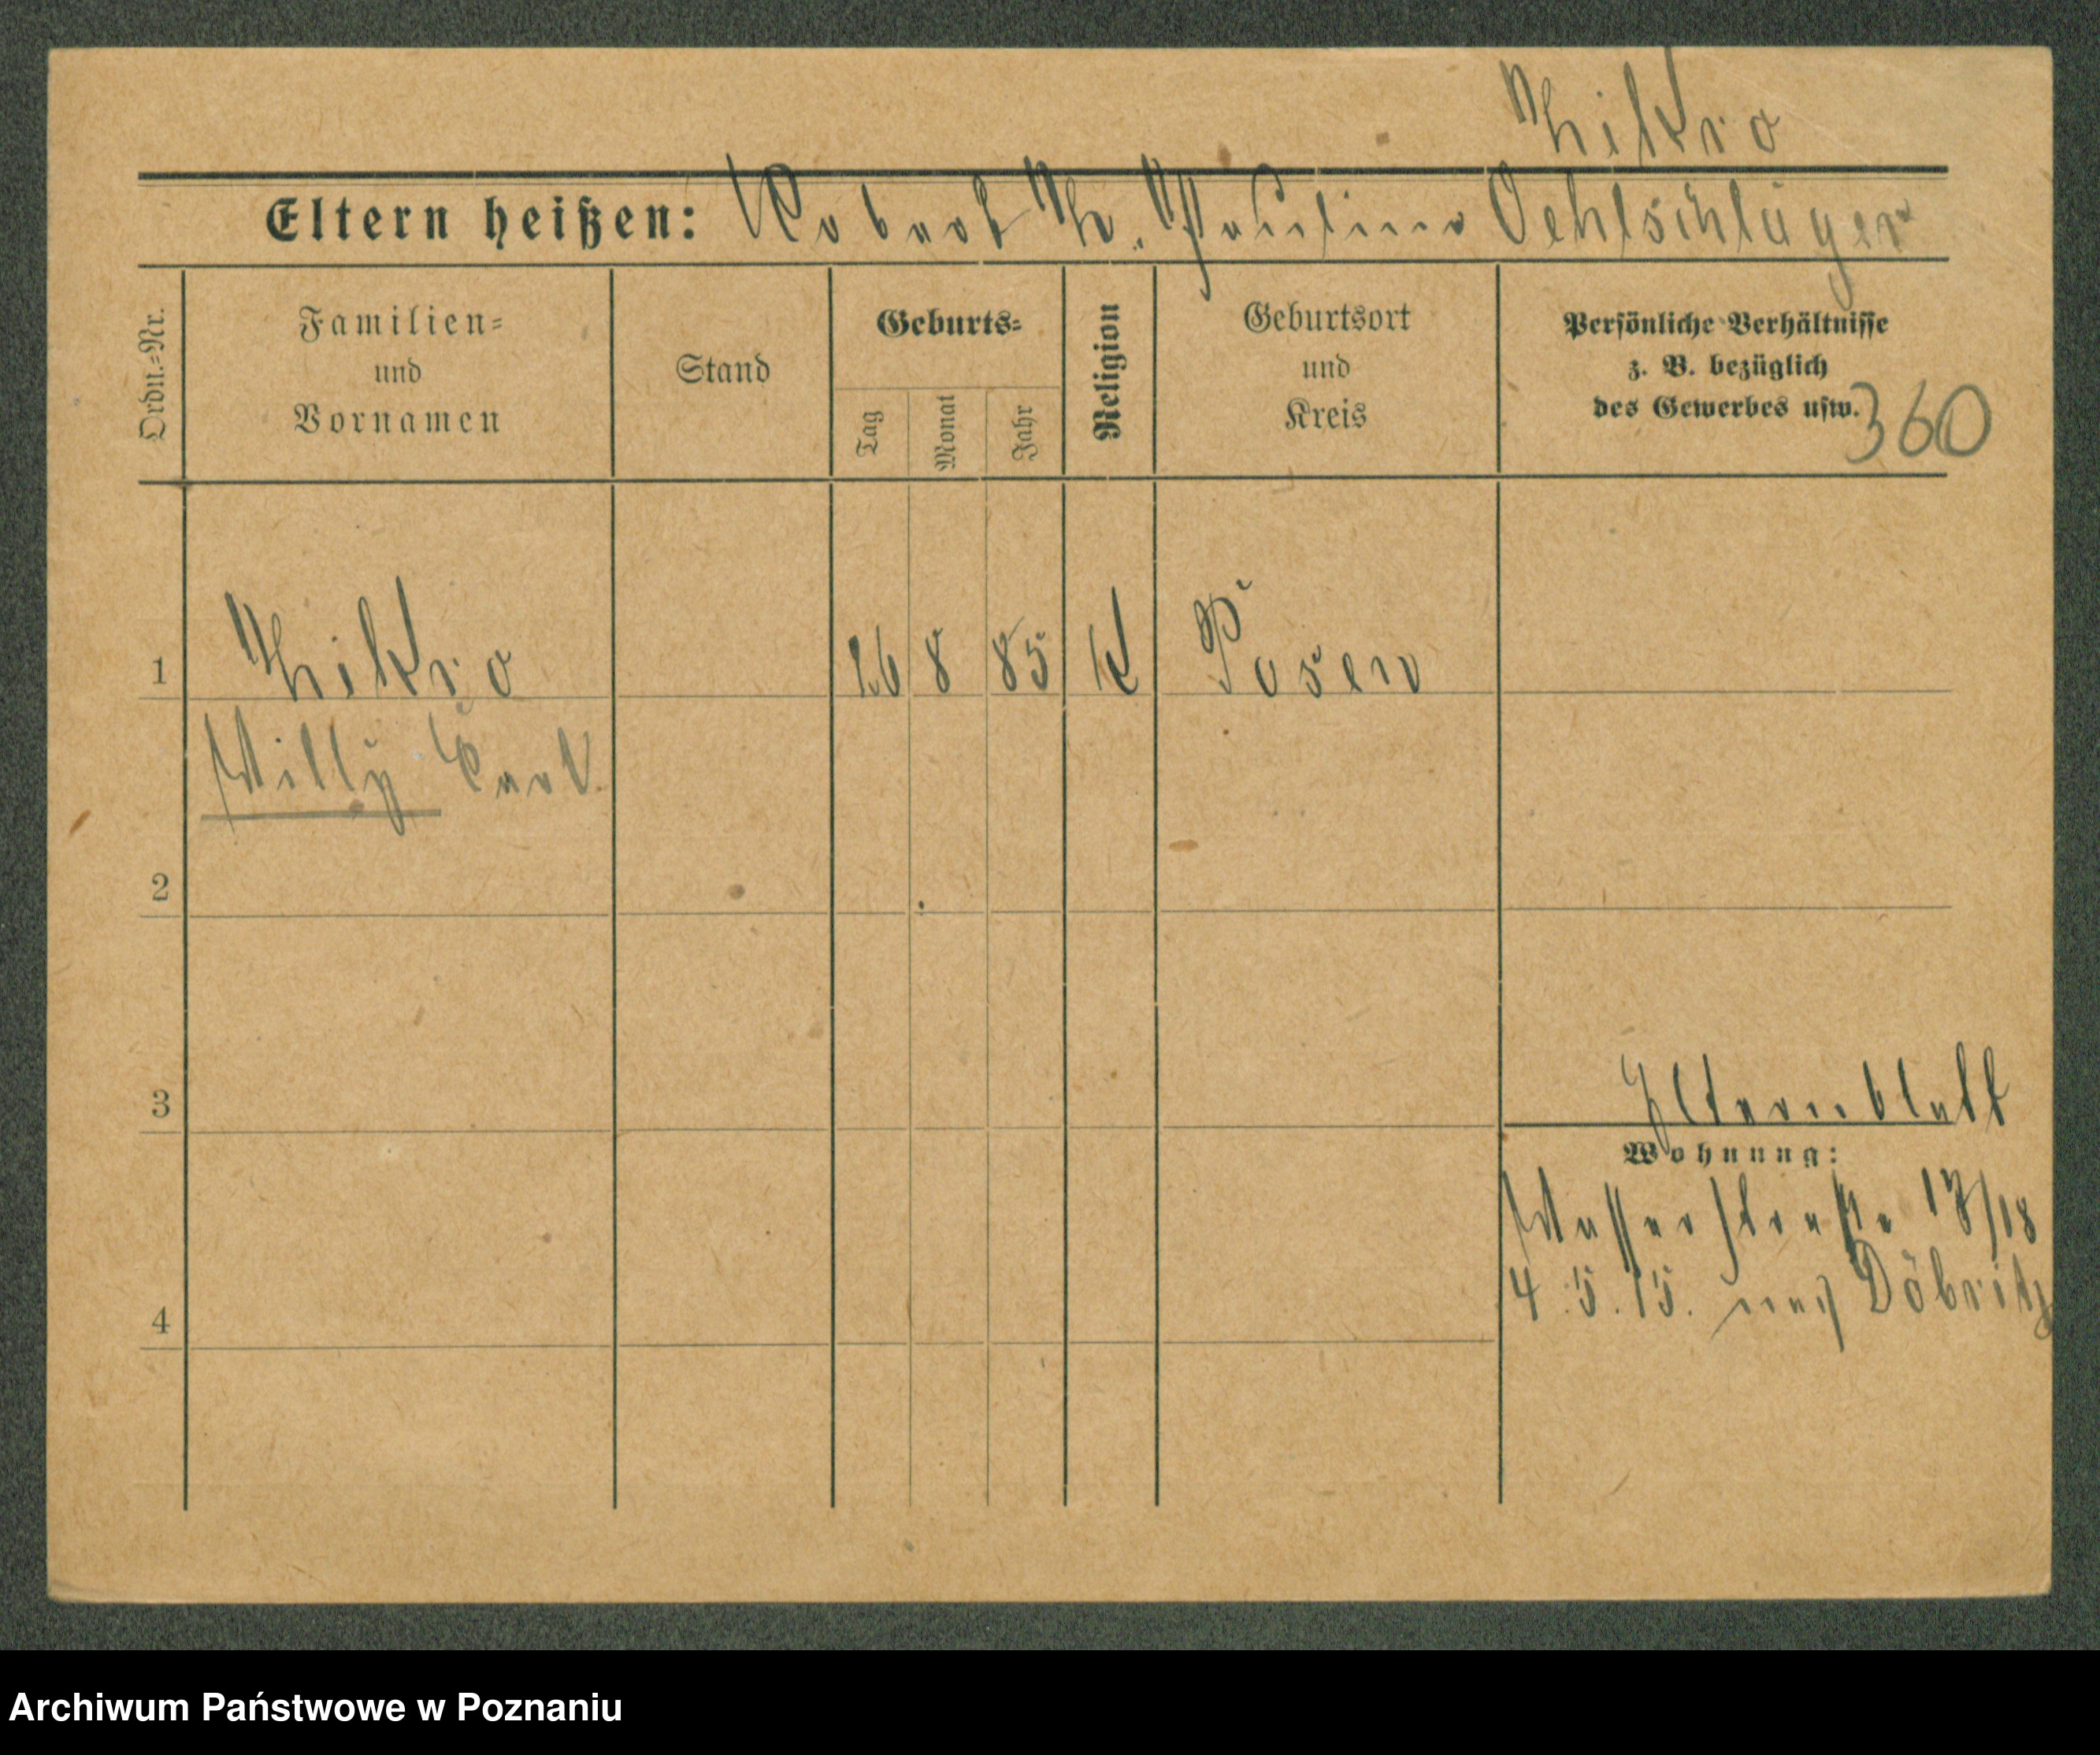 Eltern heißen: Robert Pauline Oehlschläger
Ordn.=Nr.
Familien=
und
Vornamen
Stand
Geburts=
Tag
Monat
Jahr
Religion
Geburtsort
und
Kreis
Persönliche Verhältnisse
z. B. bezüglich
des Gewerbes usw.
360
1
26 8 85 K Posen
Willy Carl
2
3
Elternblatt
Wohnung:
Wasserstraße 17/18
4
4.5.15. nach Döbritz
Archiwum Państwowe w Poznaniu